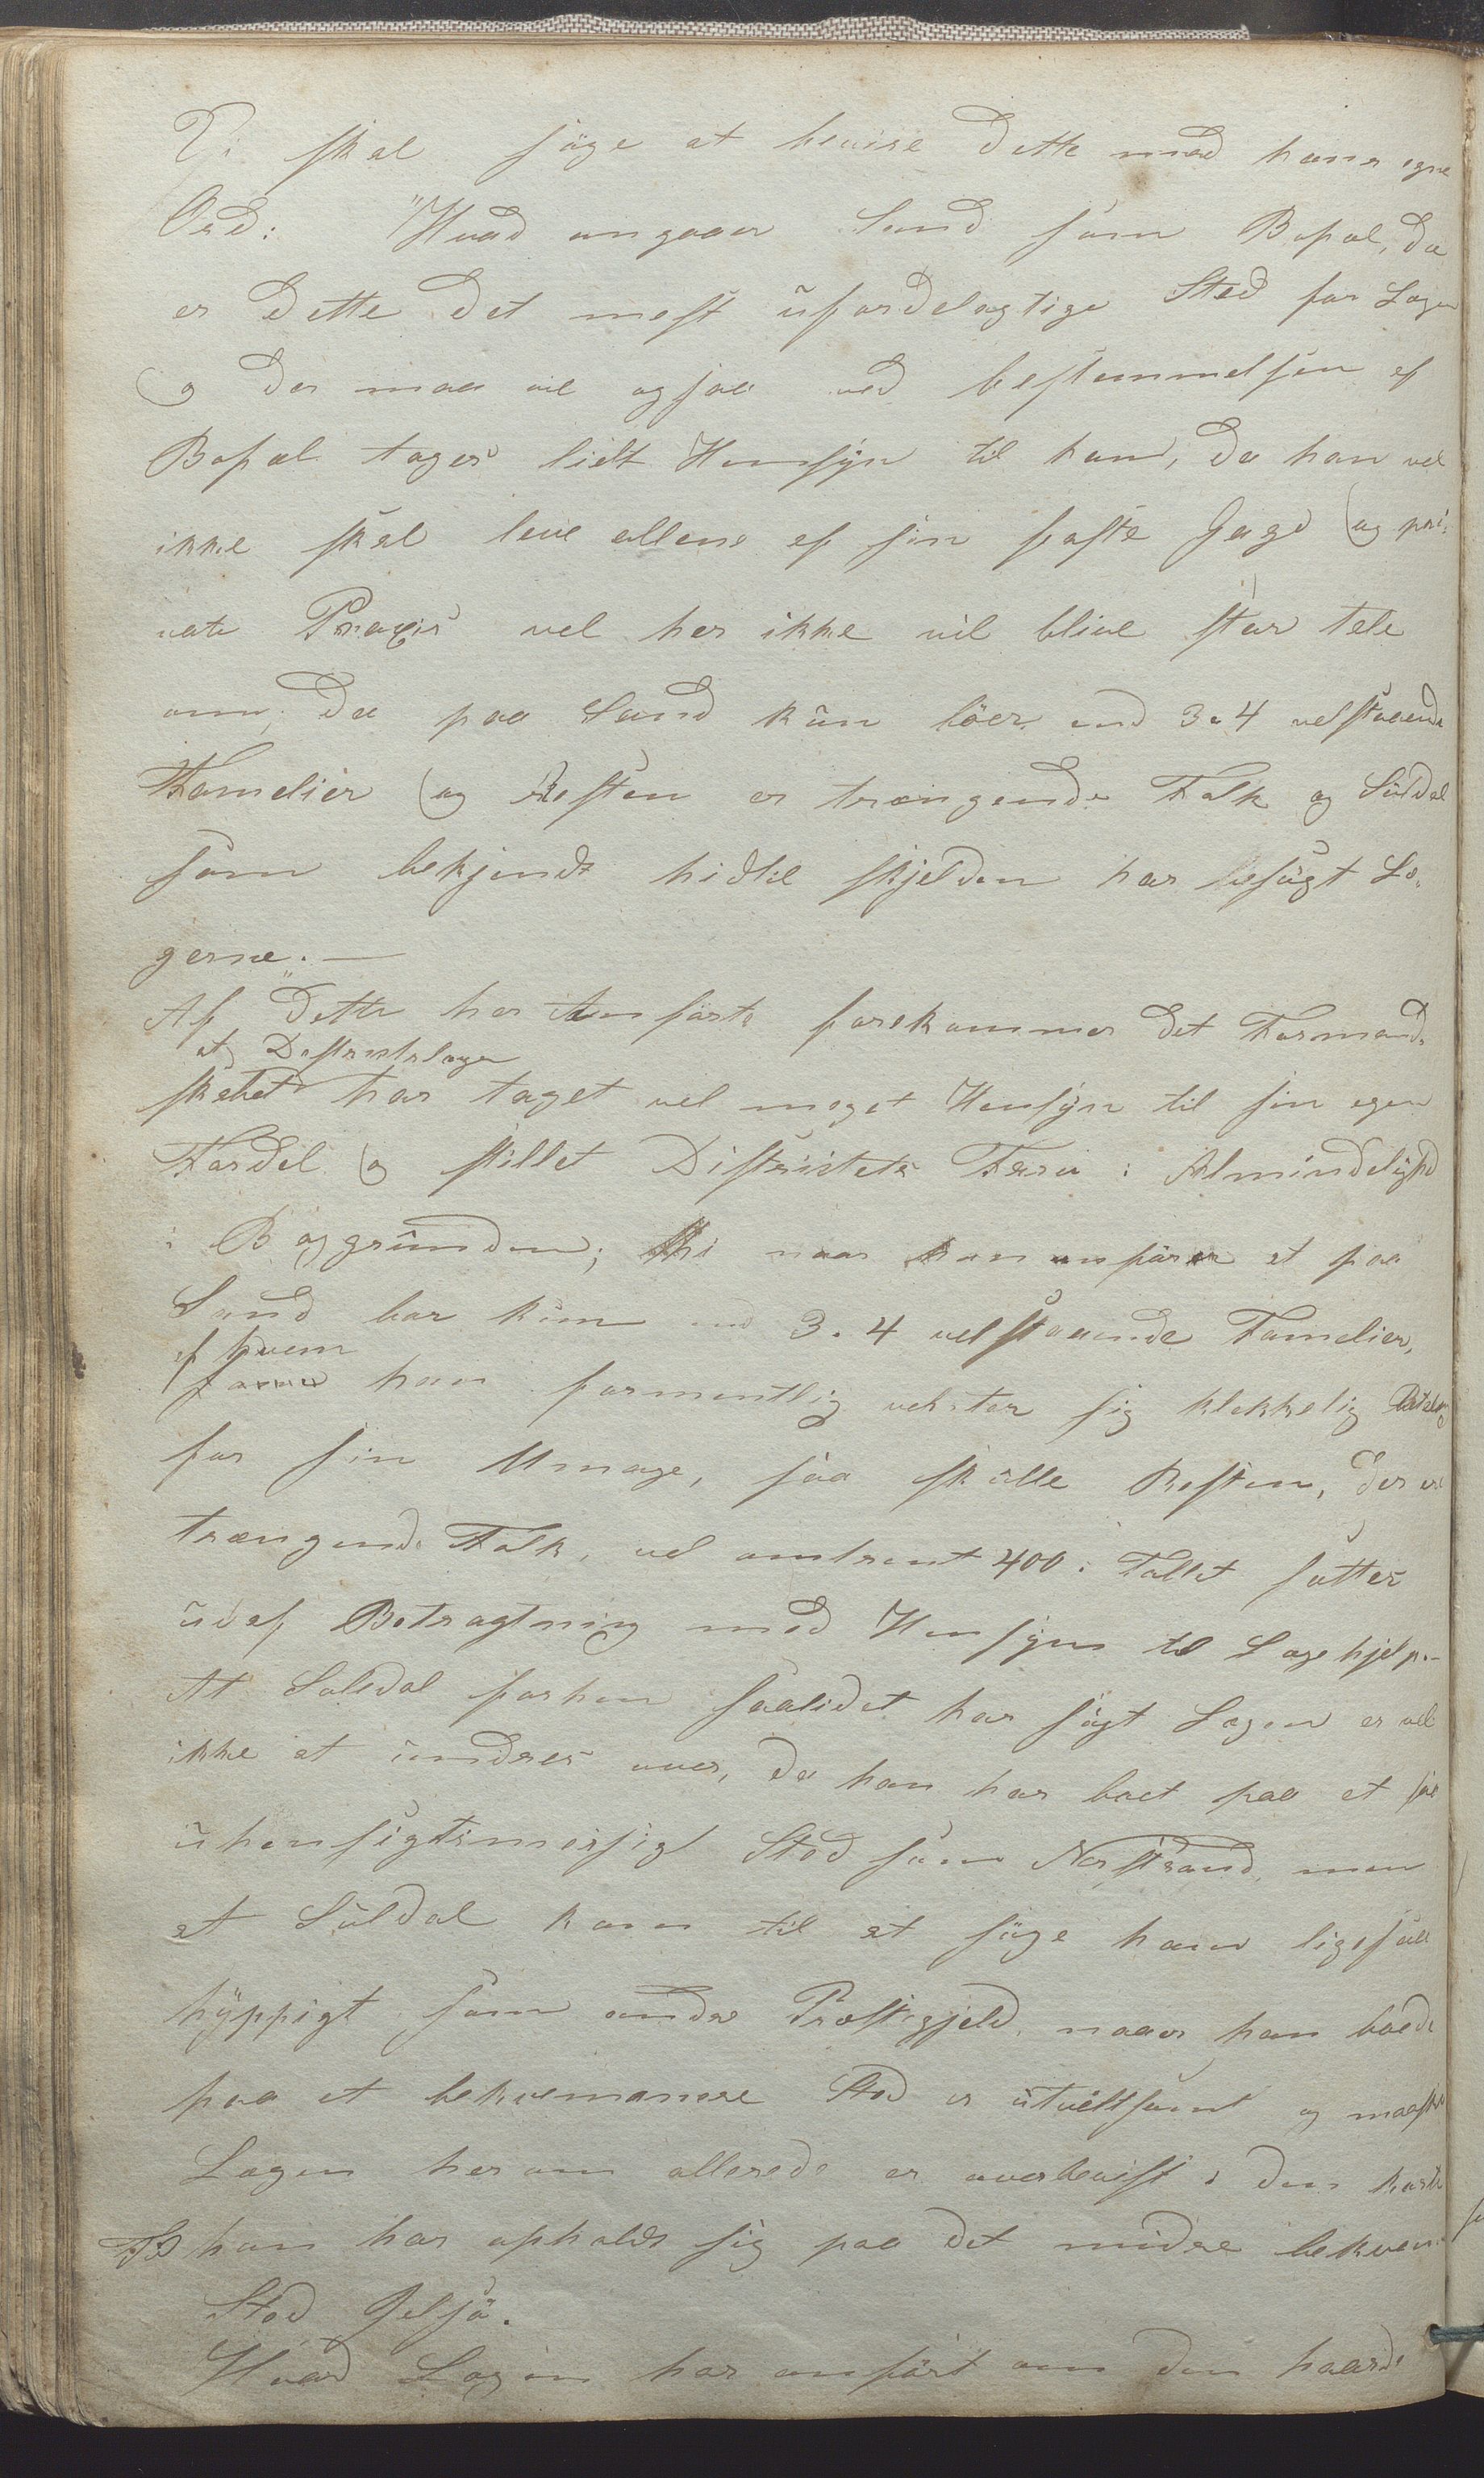 Vi skal söge at bevise dette med hans egne
Ord: "Hvad angaaer Sand som Bopæl, da
er dette det mest ufordelagtige Sted for Lægen
og der maa vel ogsaa ved bestemmelsen af
Bopæl tages lidt Hensÿn til ham, da han vel
ikke skal leve allene af sin faste Gage og pri-
vate Praxis vel her ikke vil blive stor tale
om, da paa Sand kun böer 3 a 4 velstaaende
Familier og Resten er trængende Folk og Suldal
som bekjendt hidtil skjelden har besögt Læ-
gerne."—
Af dette her Anförte forekommer det Formand-
at Distriktslægen
skabet har taget vel meget Hensÿn til sin egen
Fordel og stillet Distriktets Tarv i Almindelighed
i Baggrunden; thi naar han anförer at paa
Sand bor kun 3 a 4 velstaaende Familier,
af hvem
han formentlig venter sig klækkelig Betaling
for sin Umage, saa skulle Resten, der er
trængende Folk, vel omtrent 400 i Tallet sættes
ud af Betragtning med Hensÿn til Lægehjelp.-
At Suledal forhen saalidet har sögt Lægen er vel
ikke at undres over, da han har boet paa et saa
uhensigtsmæssigt Sted som Nerstrand, men
at Suldal kom til at söge ham ligesaa
hÿppigt som andre Præstegjeld, naar han boede
paa et bekvemmere Sted er utvilsomt og maaske
Lægen herom allerede er overbevist i den korte
Tid han har opholdt sig paa det mindre bekvemme
Sted Jelsö.
Hvad Lægen har anfört om den haarde